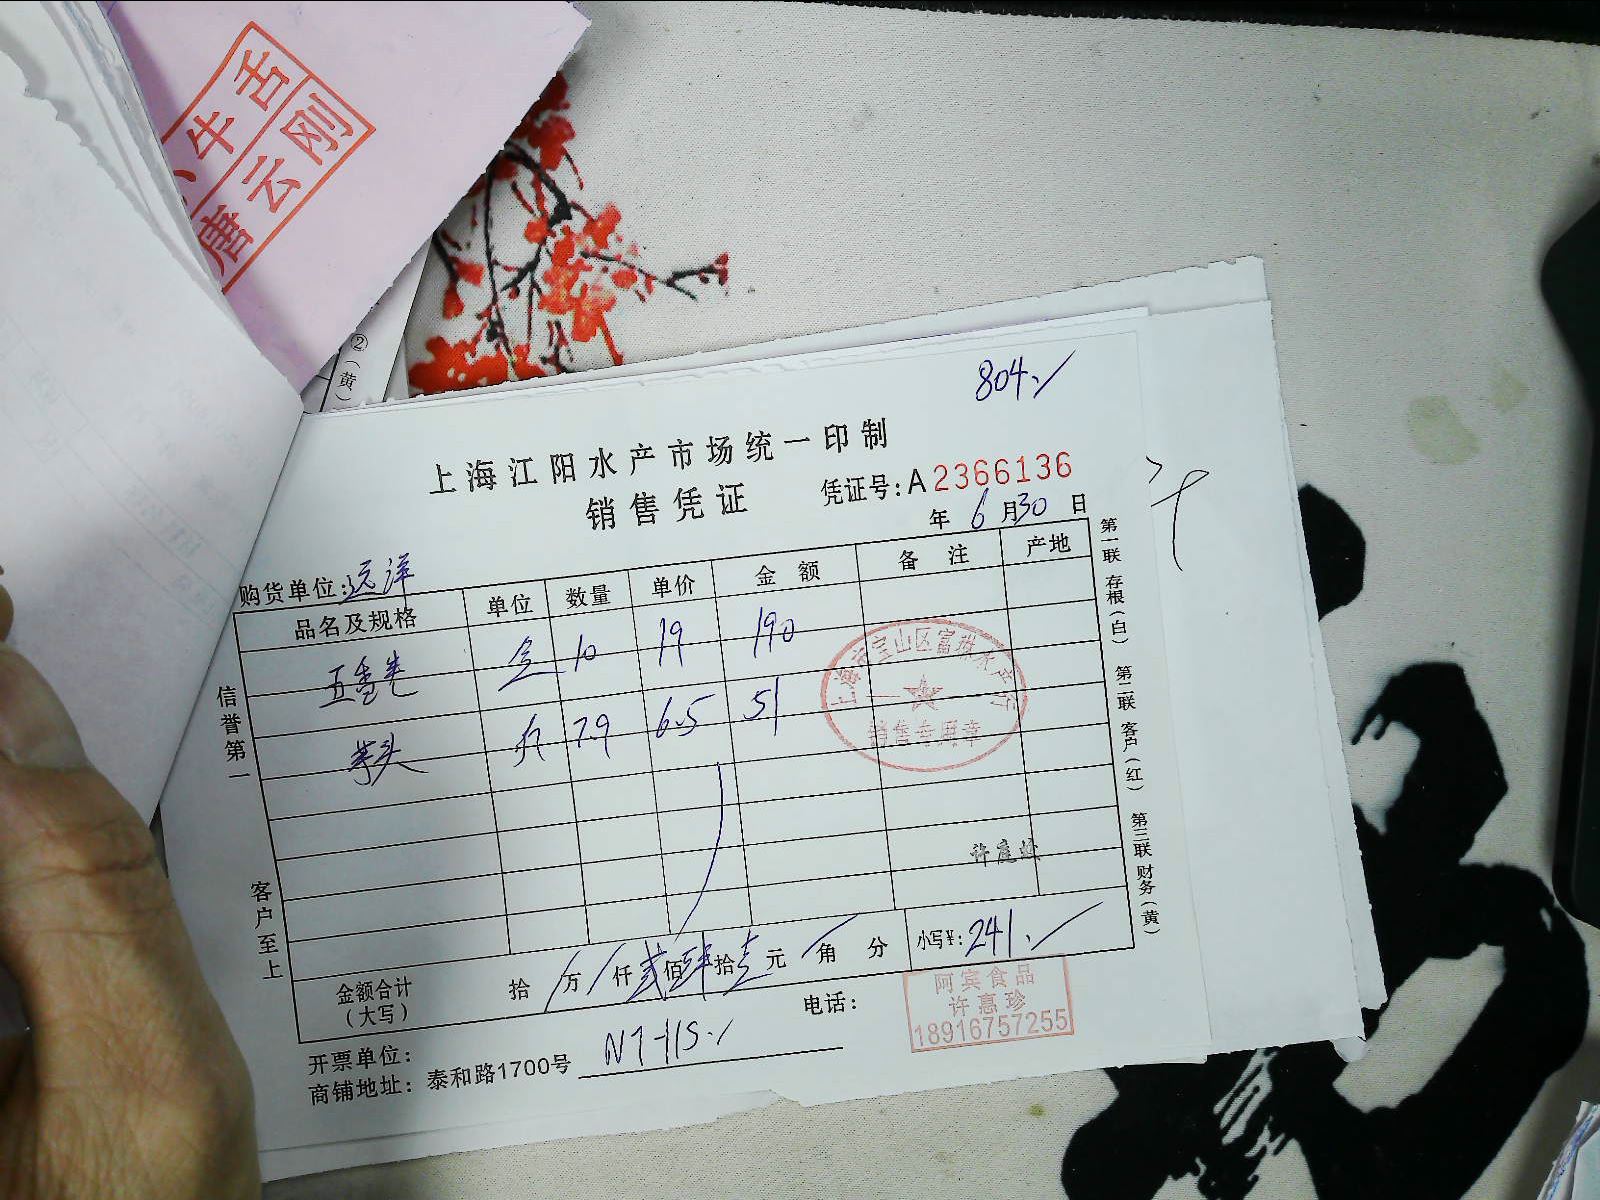 舌
牛
刚
云
唐
②（黄）
804.
上海江阳水产市场统一印制
销售凭证
凭证号:A2366136
年 6月30日
购货单位:远洋
品名及规格 单位 数量 单价 金额 备注 产地
五香 10 19 190
芋头 斤 7.9 6.5 51
上海市宝山区富 水产行
销售专用章
许
信誉第一
客户至上
第一联 存根（白） 第二联 客户（红） 第三联 财务（黄）
金额合计（大写） 拾 万 仟 贰 佰 肆 拾 壹 元 角 分 小写¥: 241.
开票单位:
电话:
商铺地址: 泰和路1700号 N7-115.
阿宾食品
许惠珍
18916757255